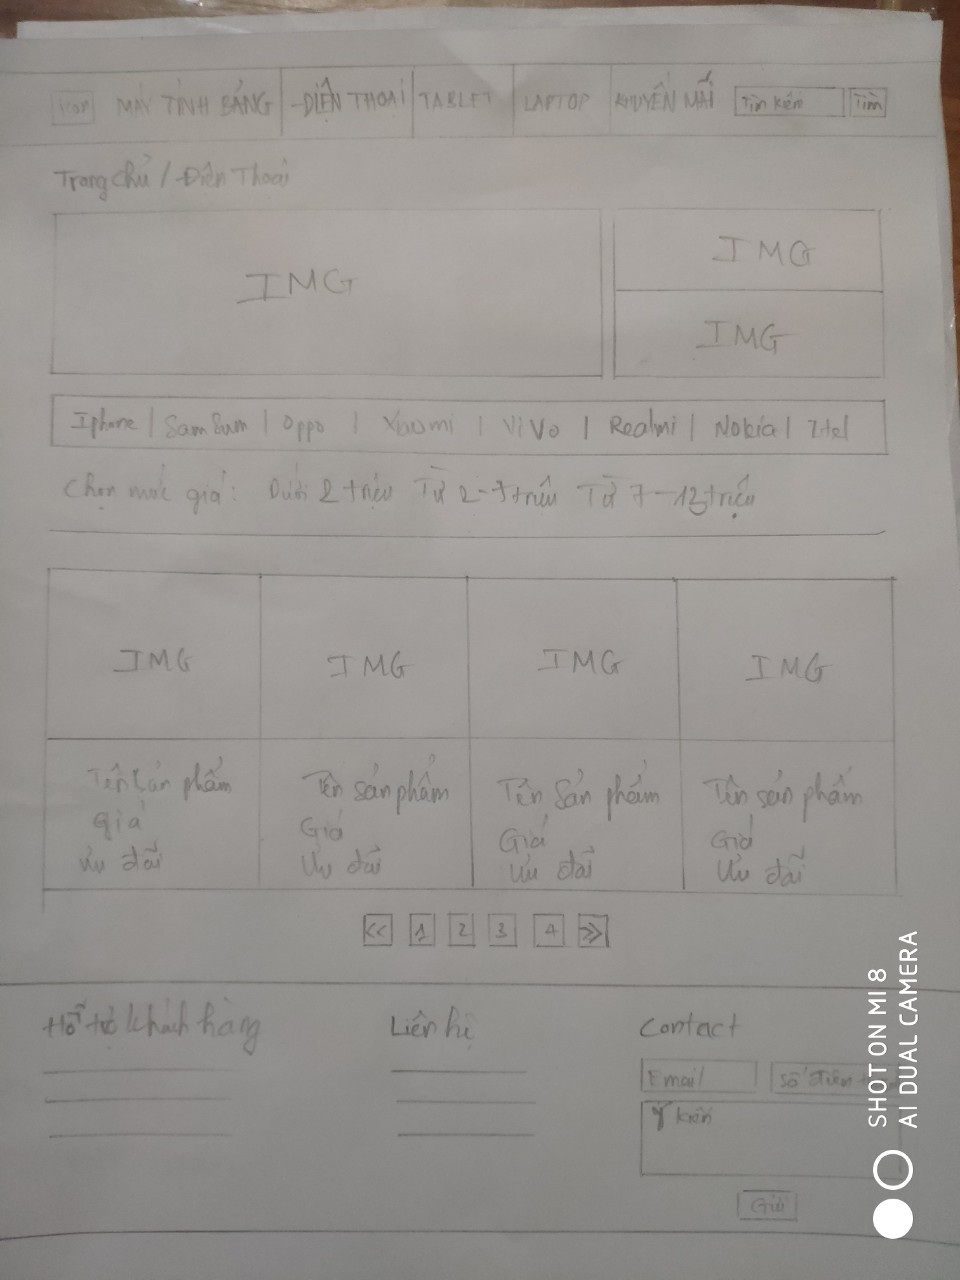 MÁY TÍNH BẢNG ĐIỆN THOẠI TABLET LAPTOP KHUYẾN MÃI Tìm kiếm Tìm
Trang chủ / Điện Thoại
IMG IMG
IMG
Iphone | SamSum | Oppo | Xiaomi | ViVo | Realmi | Nokia | Itel
Chọn mức giá: Dưới 2 triệu Từ 2-7 triệu Từ 7-13 triệu
IMG IMG IMG IMG
Tên sản phẩm Tên sản phẩm Tên Sản phẩm Tên sản phẩm
giá Giá Giá Giá
Ưu đãi Ưu đãi Ưu đãi Ưu đãi
<< 1 2 3 4 >>
Hỗ trợ khách hàng Liên hệ Contact
Email Số điện
Ý kiến
Gửi
SHOT ON MI 8
AI DUAL CAMERA